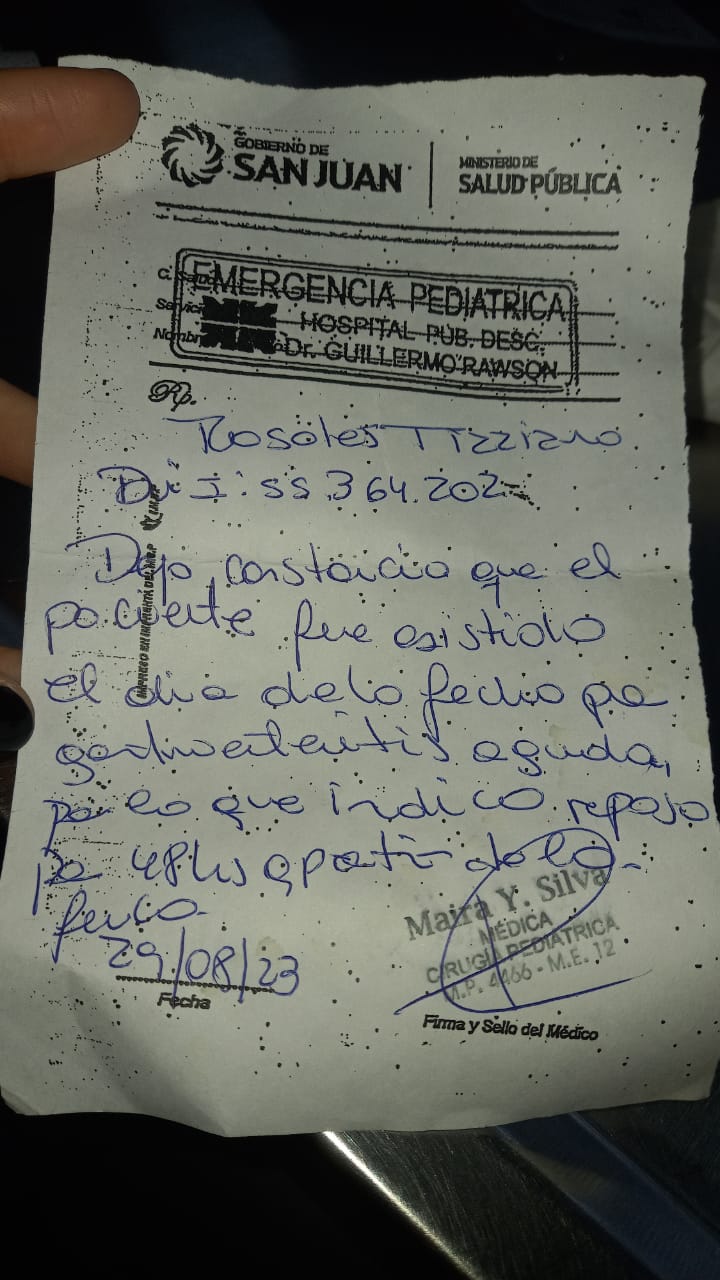 GOBIERNO DE
SAN JUAN
MINISTERIO DE
SALUD PÚBLICA
EMERGENCIA PEDIATRICA
HOSPITAL PUB. DESC.
Dr. GUILLERMO RAWSON
Rp.
Rosales Tizziano
DNI: 55.364.202
Dejo constancia que el
paciente fue asistido
el dia de la fecha por
gastroenteritis aguda,
por lo que indico reposo
por 48hs a partir de la
fecha.
29/08/23
Fecha
Maira Y. Silva
MÉDICA
CIRUGÍA PEDIATRICA
M.P. 4466 - M.E. 12
Firma y Sello del Médico